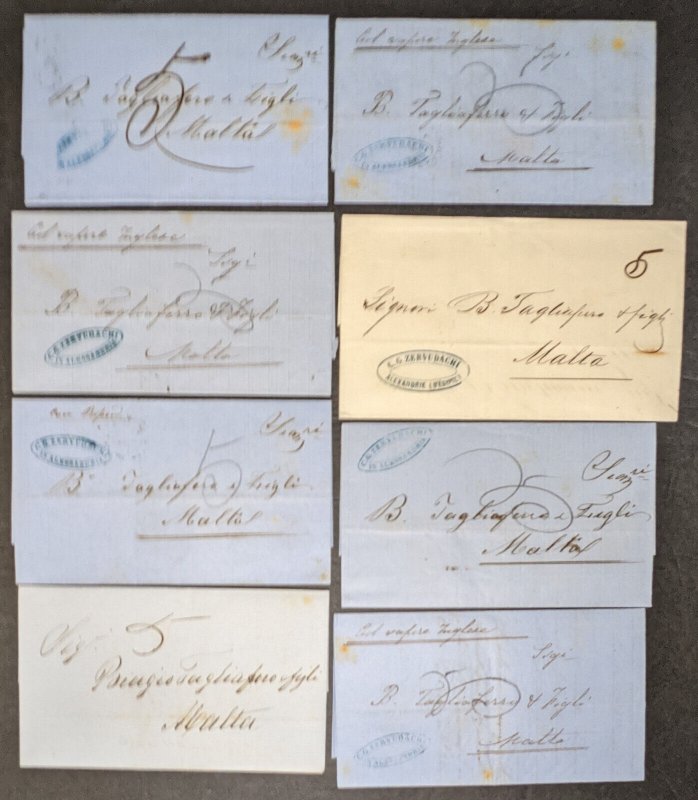 5
B. Tagliafero e Figli
Malta
Col vapore Inglese
Sigi
B. Tagliaferro & Figli
Malta
C.G. ZERVUDACHI
IN ALESSANDRIA
Col vapore Inglese
Sigi
B. Tagliaferro & Figli
Malta
C.G. ZERVUDACHI
IN ALESSANDRIA
5
Signori B. Tagliafero & figli
Malta
C. G. ZERVUDACHI
ALEXANDRIE (D'EGYPTE)
C.G. ZERVUDACHI
IN ALESSANDRIA
5
B. Tagliafero e Figli
Malta
C.G. ZERVUDACHI
IN ALESSANDRIA
B. Tagliafero e Figli
Malta
Sigi 5
Biagio Tagliafero e figli
Malta
Col vapore Inglese
Sigi
B. Tagliaferro & Figli
Malta
C.G. ZERVUDACHI
IN ALESSANDRIA